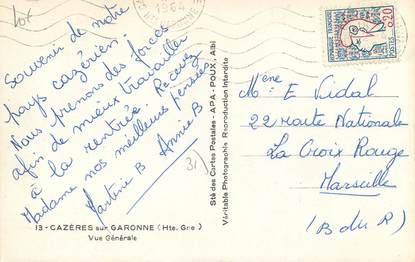 Lot
1964
Souvenir de notre
pays cazérien.
Nous prenons des forces
afin de mieux travailler
à la rentrée. Recevez
Madame nos meilleurs pensées
Martine B Annie B
31)
13 - CAZÈRES sur GARONNE (Hte. Gne)
Vue Générale
Sté des Cartes Postales - APA - POUX, Albi
Véritable Photographie Reproduction Interdite
REPUBLIQUE FRANÇAISE
POSTES 0,20
Mme E Vidal
22 route Nationale
La Croix Rouge
Marseille
(B du R)